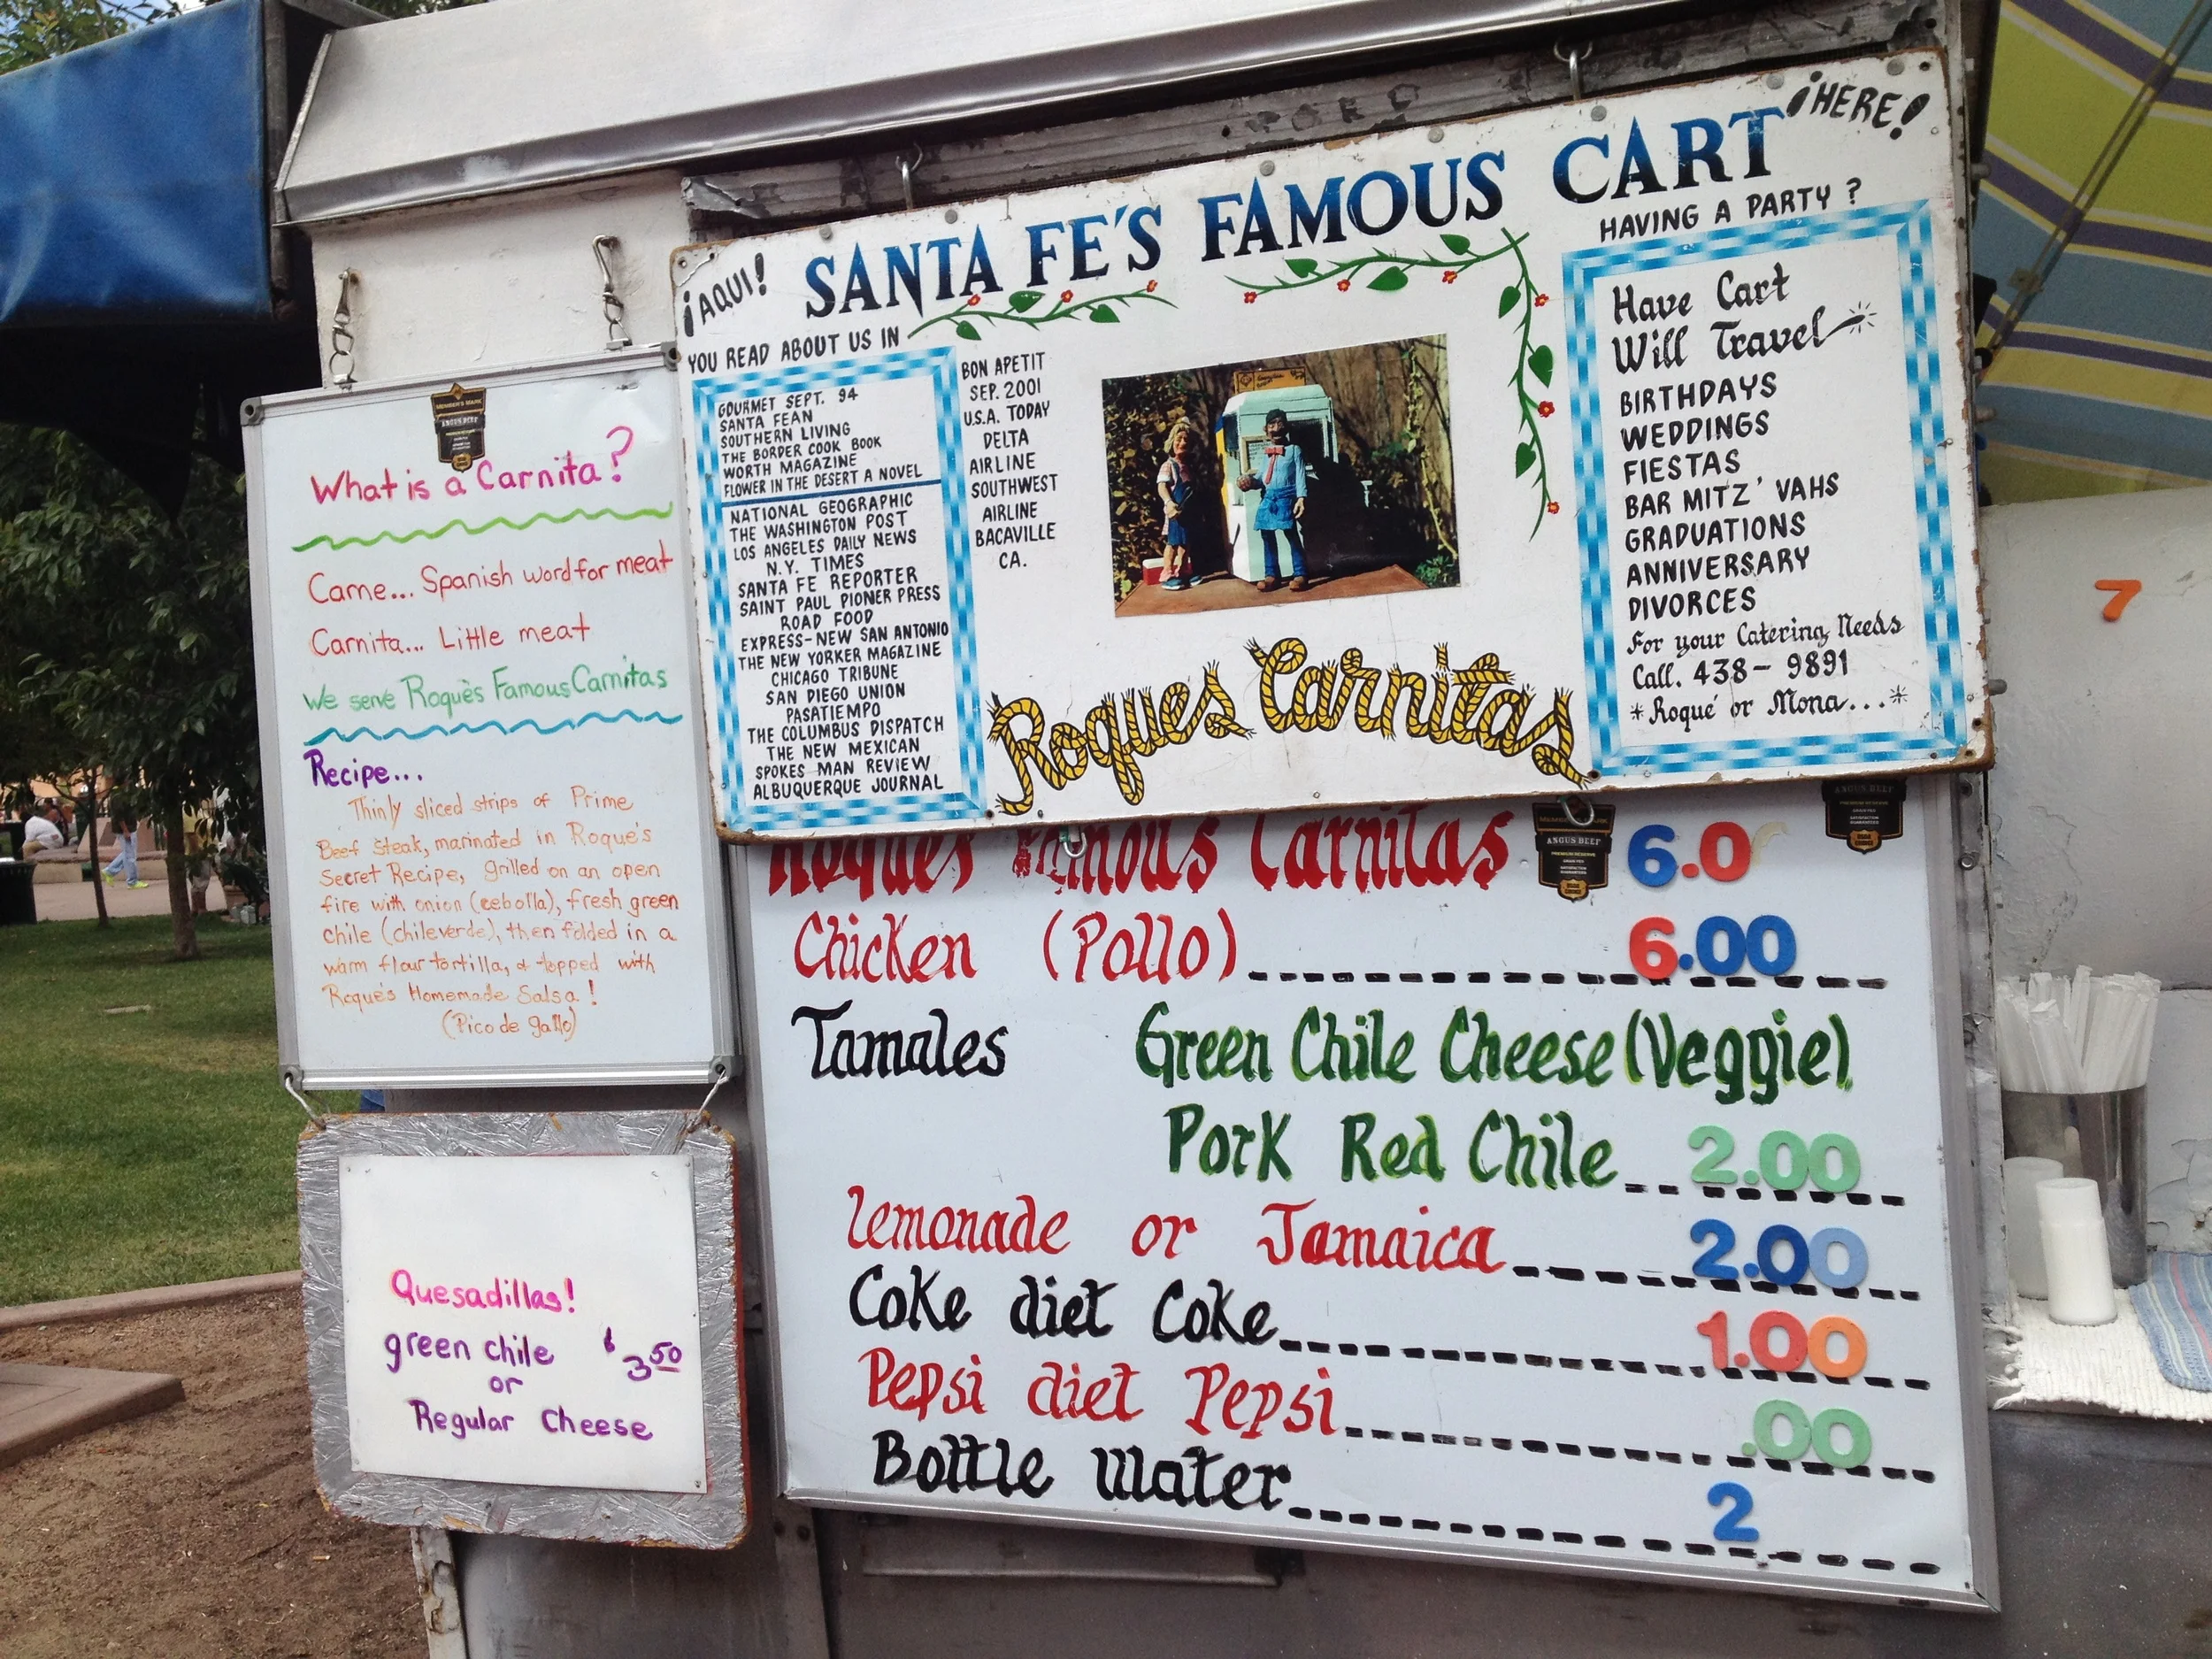 What is a Carnita?
Carne... Spanish word for meat
Carnita... Little meat
We serve Roque's Famous Carnitas
Recipe...
Thinly sliced strips of Prime
Beef Steak, marinated in Roque's
Secret Recipe, grilled on an open
fire with onion (cebolla), fresh green
chile (chile verde), then folded in a
warm flour tortilla, & topped with
Roque's Homemade Salsa!
(Pico de gallo)
Quesadillas!
green chile $3.50
or
Regular Cheese
¡AQUI!
SANTA FE'S FAMOUS CART
¡HERE!
YOU READ ABOUT US IN
GOURMET SEPT. 94
SANTA FEAN
SOUTHERN LIVING
THE BORDER COOK BOOK
WORTH MAGAZINE
FLOWER IN THE DESERT A NOVEL
NATIONAL GEOGRAPHIC
THE WASHINGTON POST
LOS ANGELES DAILY NEWS
N.Y. TIMES
SANTA FE REPORTER
SAINT PAUL PIONER PRESS
ROAD FOOD
EXPRESS-NEW SAN ANTONIO
THE NEW YORKER MAGAZINE
CHICAGO TRIBUNE
SAN DIEGO UNION
PASATIEMPO
THE COLUMBUS DISPATCH
THE NEW MEXICAN
SPOKES MAN REVIEW
ALBUQUERQUE JOURNAL
BON APETIT
SEP. 2001
U.S.A. TODAY
DELTA
AIRLINE
SOUTHWEST
AIRLINE
BACAVILLE
CA.
Roques Carnitas
HAVING A PARTY?
Have Cart
Will Travel
BIRTHDAYS
WEDDINGS
FIESTAS
BAR MITZ'VAHS
GRADUATIONS
ANNIVERSARY
DIVORCES
For your Catering Needs
Call. 438-9891
*Roqué or Mona...*
Roques Famous Carnitas 6.0
ANGUS BEEF
Chicken (Pollo) 6.00
Tamales Green Chile Cheese (Veggie)
Pork Red Chile 2.00
Lemonade or Jamaica 2.00
Coke diet Coke 1.00
Pepsi diet Pepsi .00
Bottle Water 2
7